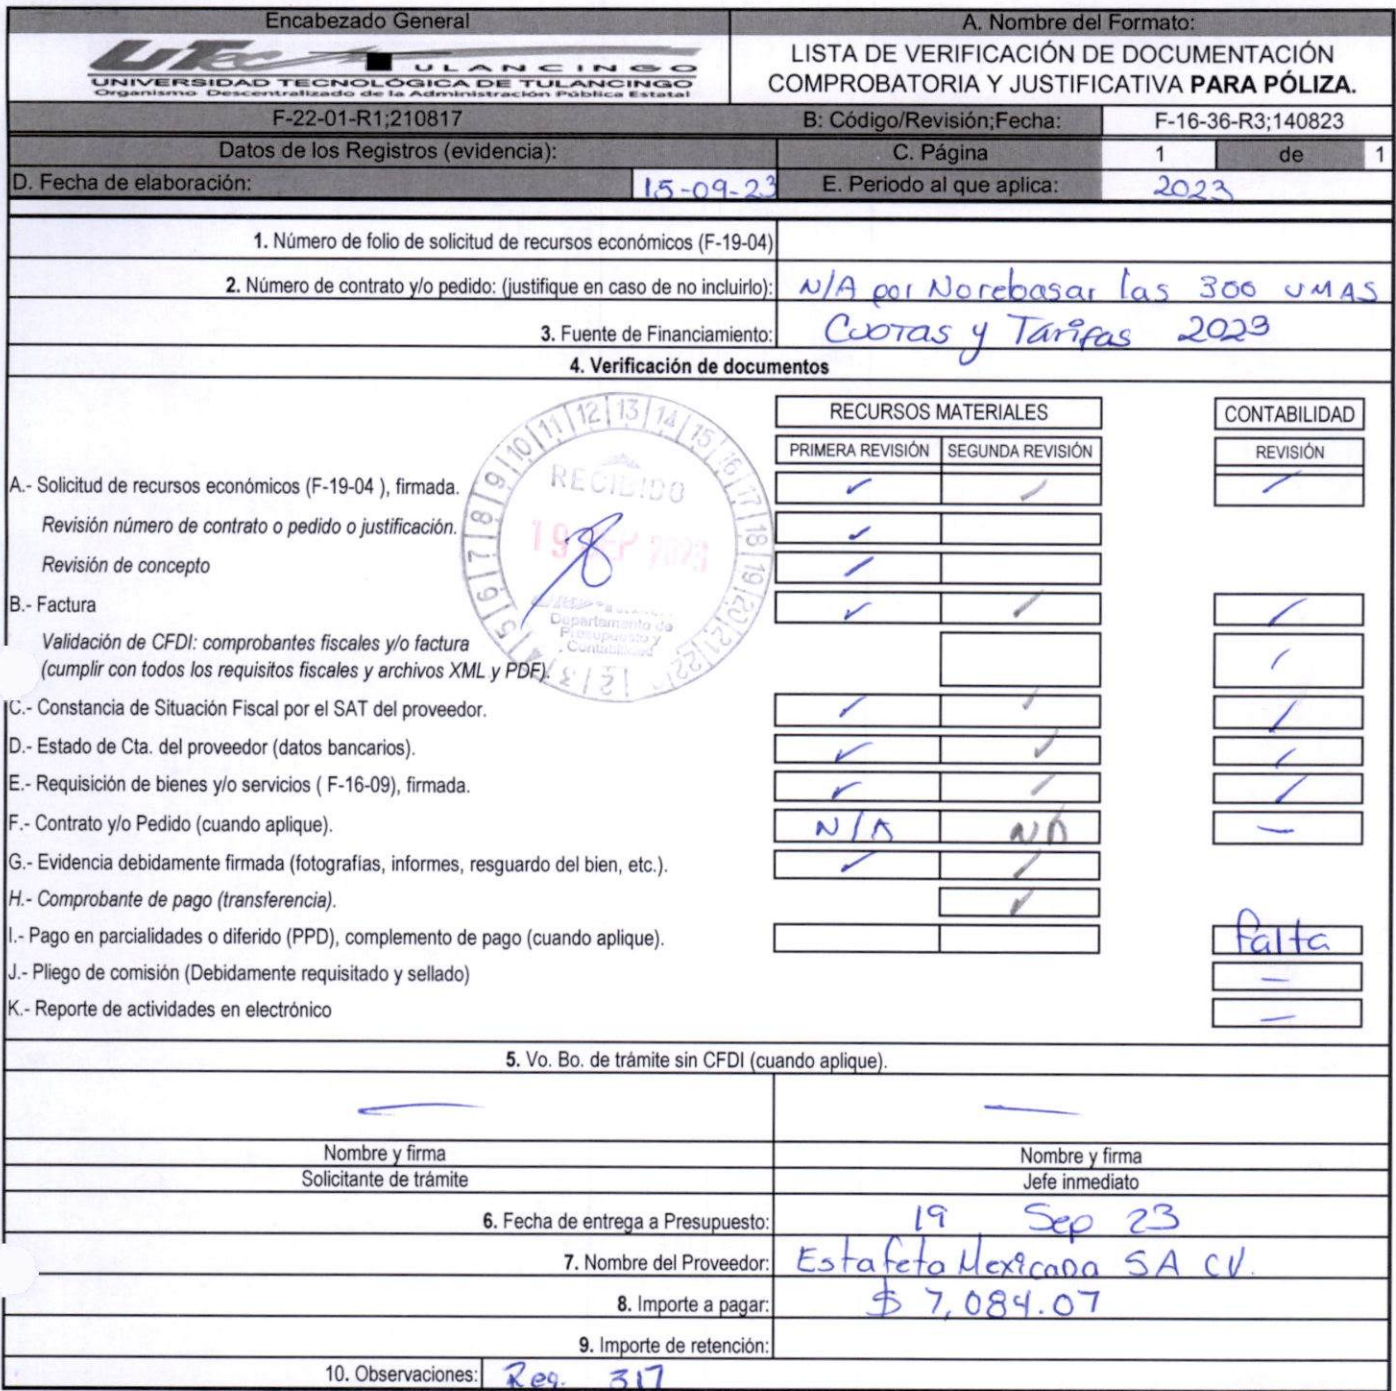 Encabezado General
A. Nombre del Formato:
UTec TULANCINGO
UNIVERSIDAD TECNOLÓGICA DE TULANCINGO
Organismo Descentralizado de la Administración Pública Estatal
LISTA DE VERIFICACIÓN DE DOCUMENTACIÓN
COMPROBATORIA Y JUSTIFICATIVA PARA PÓLIZA.
F-22-01-R1;210817
B: Código/Revisión;Fecha:
F-16-36-R3;140823
Datos de los Registros (evidencia):
C. Página
1 de 1
D. Fecha de elaboración:
15-09-23
E. Periodo al que aplica:
2023
1. Número de folio de solicitud de recursos económicos (F-19-04)
2. Número de contrato y/o pedido: (justifique en caso de no incluirlo):
N/A por No rebasar las 300 UMAS
3. Fuente de Financiamiento:
Cuotas y Tarifas 2023
4. Verificación de documentos
RECURSOS MATERIALES
CONTABILIDAD
PRIMERA REVISIÓN
SEGUNDA REVISIÓN
REVISIÓN
A.- Solicitud de recursos económicos (F-19-04 ), firmada. ✓ ✓ ✓
Revisión número de contrato o pedido o justificación. ✓
Revisión de concepto ✓
B.- Factura ✓ ✓ ✓
Validación de CFDI: comprobantes fiscales y/o factura
(cumplir con todos los requisitos fiscales y archivos XML y PDF).
C.- Constancia de Situación Fiscal por el SAT del proveedor. ✓ ✓ ✓
D.- Estado de Cta. del proveedor (datos bancarios). ✓ ✓ ✓
E.- Requisición de bienes y/o servicios ( F-16-09), firmada. ✓ ✓ ✓
F.- Contrato y/o Pedido (cuando aplique). N/A NA —
G.- Evidencia debidamente firmada (fotografías, informes, resguardo del bien, etc.). ✓ ✓
H.- Comprobante de pago (transferencia). ✓
I.- Pago en parcialidades o diferido (PPD), complemento de pago (cuando aplique). falta
J.- Pliego de comisión (Debidamente requisitado y sellado) —
K.- Reporte de actividades en electrónico —
1 2 3 4 5 6 7 8 9 10 11 12 13 14 15 16 17 18 19 20 21 22
RECIBIDO
19 SEP 2023
Departamento de
Presupuesto y
Contabilidad
5. Vo. Bo. de trámite sin CFDI (cuando aplique).
— —
Nombre y firma
Nombre y firma
Solicitante de trámite
Jefe inmediato
6. Fecha de entrega a Presupuesto: 19 Sep 23
7. Nombre del Proveedor: Estafeta Mexicana SA CV.
8. Importe a pagar: $ 7,084.07
9. Importe de retención:
10. Observaciones: Req. 317